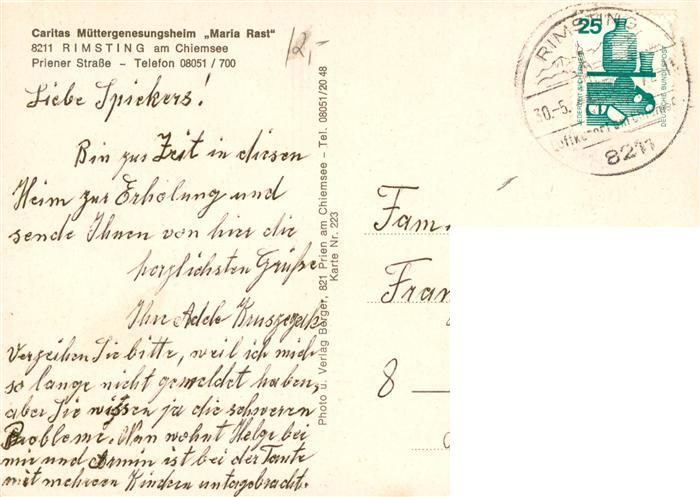 Caritas Müttergenesungsheim „Maria Rast"
8211 RIMSTING am Chiemsee
Priener Straße – Telefon 08051 / 700
12,-
Liebe Spickers!
Bin zur Zeit in diesen
Heim zur Erholung und
sende Ihnen von hier die
herzlichsten Grüße
Ihre Adele
Verzeihen Sie bitte, weil ich mich
so lange nicht gemeldet haben,
aber Sie wissen ja die schweren
Probleme. Nun wohnt Helge bei
mir und Armin ist bei der Tante
mit mehreren Kindern untagebracht.
Photo u. Verlag Berger, 821 Prien am Chiemsee – Tel. 08051/20 48
Karte Nr. 223
RIMSTING
30.-5.
8211
25
JEDERZEIT SICHERHEIT
DEUTSCHE BUNDESPOST
Fam
Fran
8